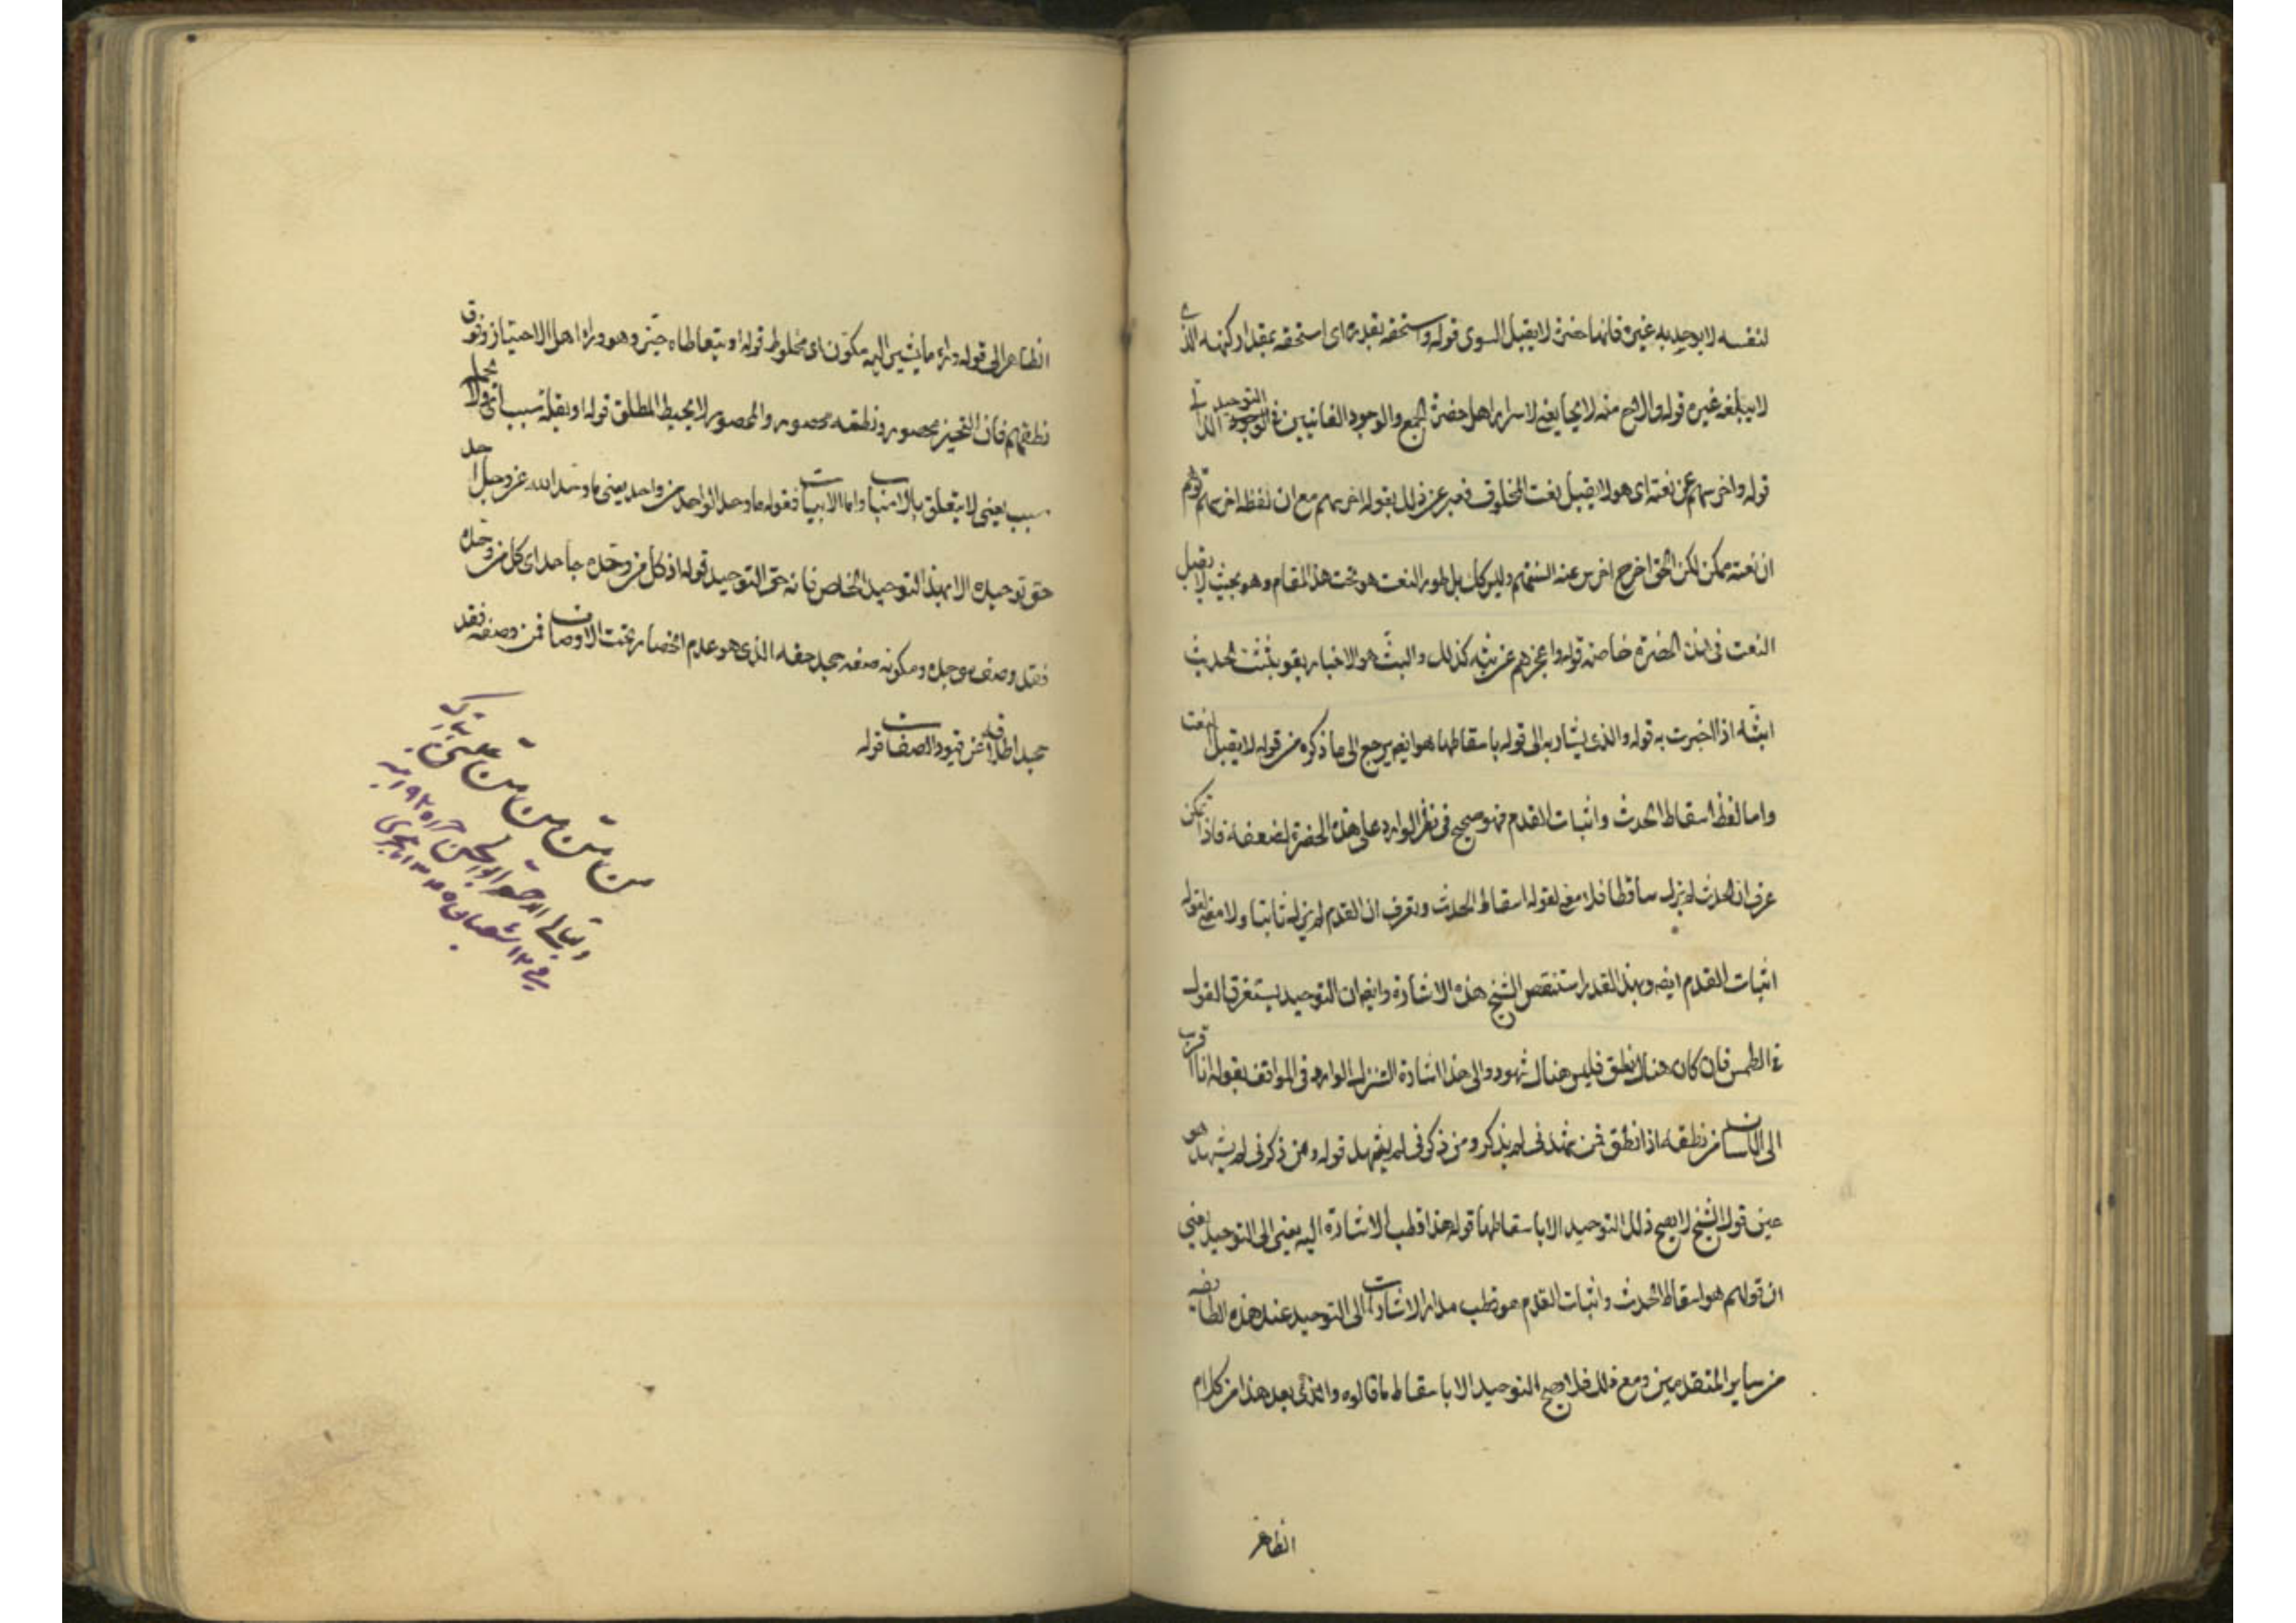 لنفسه لا يوحده به غيره فانها حضرة لا يقبل السوى قوله واستحقه بقدره اى استحقه بمقدار كنهه الذى
لا يبلغه غيره قوله والاح منه لايحا يعنى لاسرار اهل حضرة الجمع والوجود الفانيين فى التوحيد
قوله واخرسهم عن نعته اى هو لا يقبل نعت المخلوق فعبر عن ذلك بقوله اخرسهم مع ان لفظ اخرسهم توهم
ان نعته ممكن لكن الحق اخرس عنه السنتهم وليس كك بل طور النعت هو تحت هذا المقام وهو بحيث لا يقبل
النعت فى هذه الحضرة خاصة قوله واعجزهم عن بثه كذلك والبث هو الاخبار يقو بثثت الحديث
ابثه اذا اخبرت به قوله والذى يشار به الى قوله باسقاطها هو ايضه يرجع الى ما ذكره من قوله لا يقبل النعت
واما لفظ اسقاط الحدث واثبات القدم فهو صحيح فى نظر الوارد على هذه الحضرة لضعفه فاذا تمكن
عرف ان الحدث لم يزل ساقطا فلا معنى لقوله اسقاط الحدث ويعرف ان القدم لم يزل ثابتا ولا معنى لقوله
اثبات القدم ايضه وبهذا القدر استنقص الشيخ هذه الاشارة وايضه ان التوحيد يستغرق القول
فى الطمس فان كان هناك نطق فليس هناك شهود والى هذا اشارة التنزل الوارد فى المواقف بقوله انا اقرب
الى اللسان من نطقه اذا نطق فمن شهدنى لم يذكر ومن ذكرنى لم يشهد قوله ومن ذكرنى لم يشهد هو
عين قول الشيخ لا يصح ذلك التوحيد الا باسقاطها قوله هذا قطب الاشارة اليه يعنى الى التوحيد يعنى
ان قولهم هو اسقاط الحدث واثبات القدم هو قطب مدار الاشارات الى التوحيد عند هذه الطايفه
من ساير المتقدمين ومع ذلك فلا يصح التوحيد الا باسقاط ما قالوه والذى بعد هذا من كلام
الظاهر
الظاهر الى قوله وراء ما يشير اليه مكون اى مخلوط قوله او يتعاطاه حين وهو وراء اهل الاحتياز وفوق
نطقهم فان التحيز محصور ونطقه محصور والمحصور لا يحيط المطلق قوله او يقله سبب اى ولا يحمله
سبب يعنى لا يتعلق بالاسباب واما الابيات فقوله ما وحد الواحد من واحد يعنى ما وحد الله عز وجل احد
حق توحيده الا بهذا التوحيد الخاص فانه حق التوحيد قوله اذ كل من وحده جاحد اى كل من وحده
فقد وصف موحده ومكونه صفه بجحد حقه الذى هو عدم انحصاره تحت الاوصاف فمن وصفه فقد
جحد اطلاقه عن قيود الصفات قوله
من من من من من على تبارك
وتعالى
فى ١٢ شعبان ١٣٤٥ هجرى